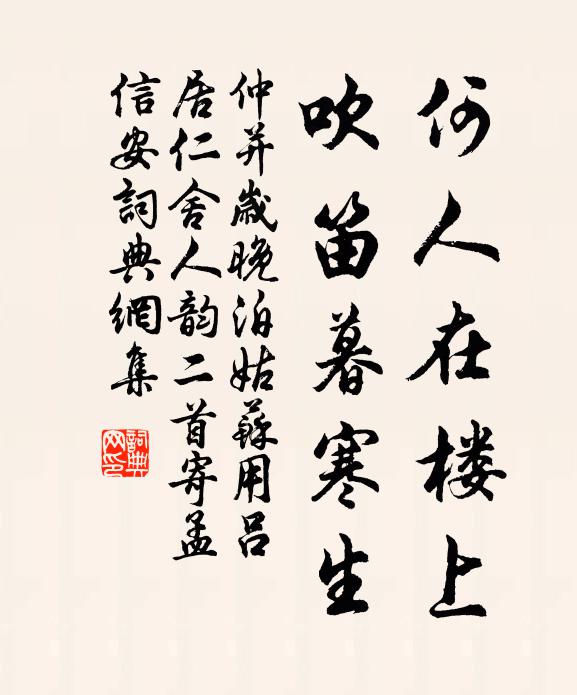 何人在楼上
吹笛暮寒生
仲并歲晚泊姑蘇用呂
居仁舍人韵二首寄孟
信安詞典網集
詞典
网印